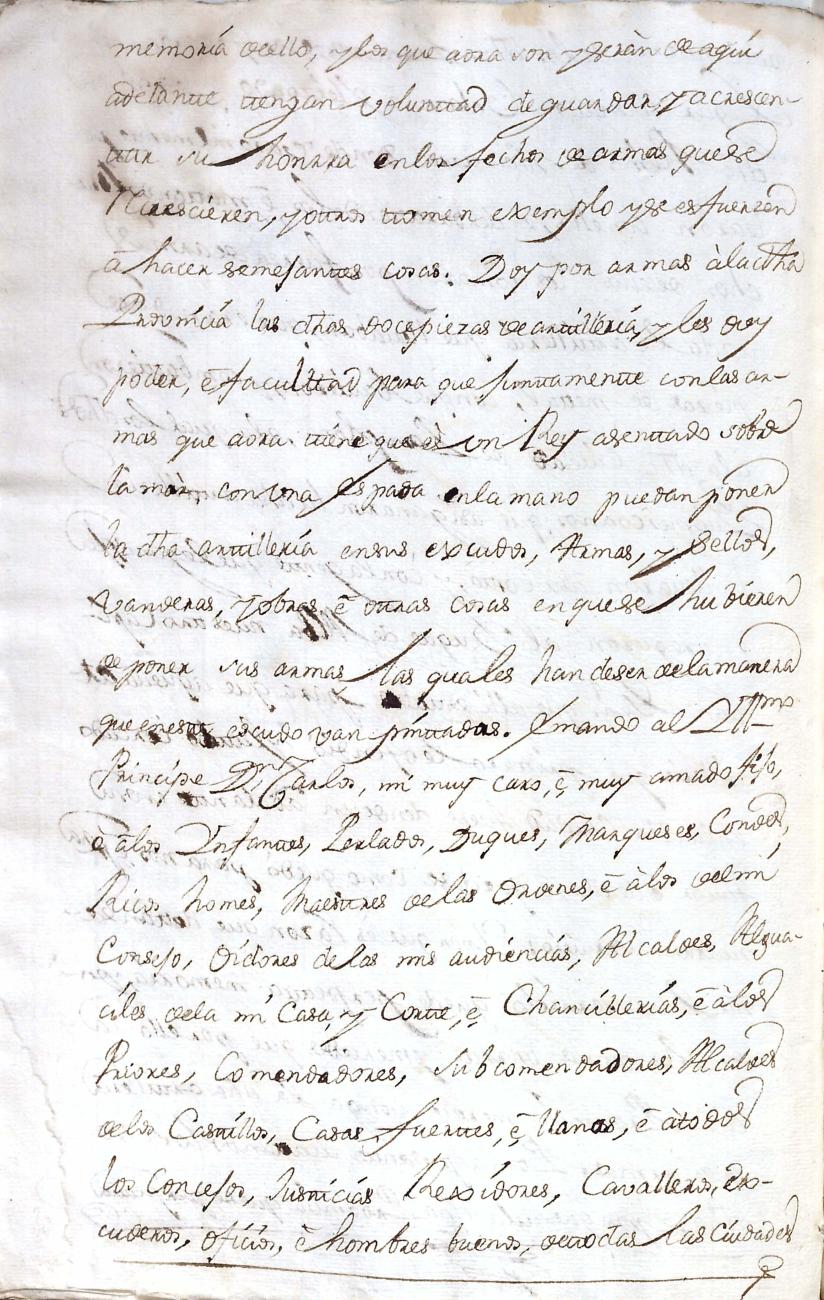 memoria de ello, y los que aora son y seràn de aqui
adelantte ttengan volunttad de guardar, y acrescen-
ttar su honrra en los fechos de armas que se
recrescieren, y ottros ttomen exemplo y se esfuerzen
â hacer semejanttes cosas. Doy por armas à la dha
Provincia las dhas doce piezas de arttillería, y les doy
poder, ê facultad para que junttamentte con las ar-
mas que aora ttiene que es un Rey asenttado sobre
la mar, con una Espada en la mano puedan poner
la dha arttillería en sus escudos, Armas, y Sellos,
vanderas, y obras ê ottras cosas en que se hubieren
de poner sus armas las quales han de ser de la manera
que en estte escudo van pinttadas. E mando al Illmo
Principe Dn Carlos, mi muy caro, ê muy amado fijo,
ê â los Infanttes, Perlados, Duques, Marqueses, Condes,
Ricos homes, Maesttres de las Ordenes, ê à los del mi
Consejo, Oidores de las mis audiencias, Alcaldes, Algua-
ciles de la mi Casa, y Cortte, ê Chancillerías, ê à los
Priores, Comendadores, Subcomendadores, Alcaldes
de los Casttillos, Casas fuerttes, ê llanas, ê à todos
los Concejos, Justticias Rexidores, Cavalleros, es-
cuderos, oficios, ê hombres buenos, de ttodas las Ciudades